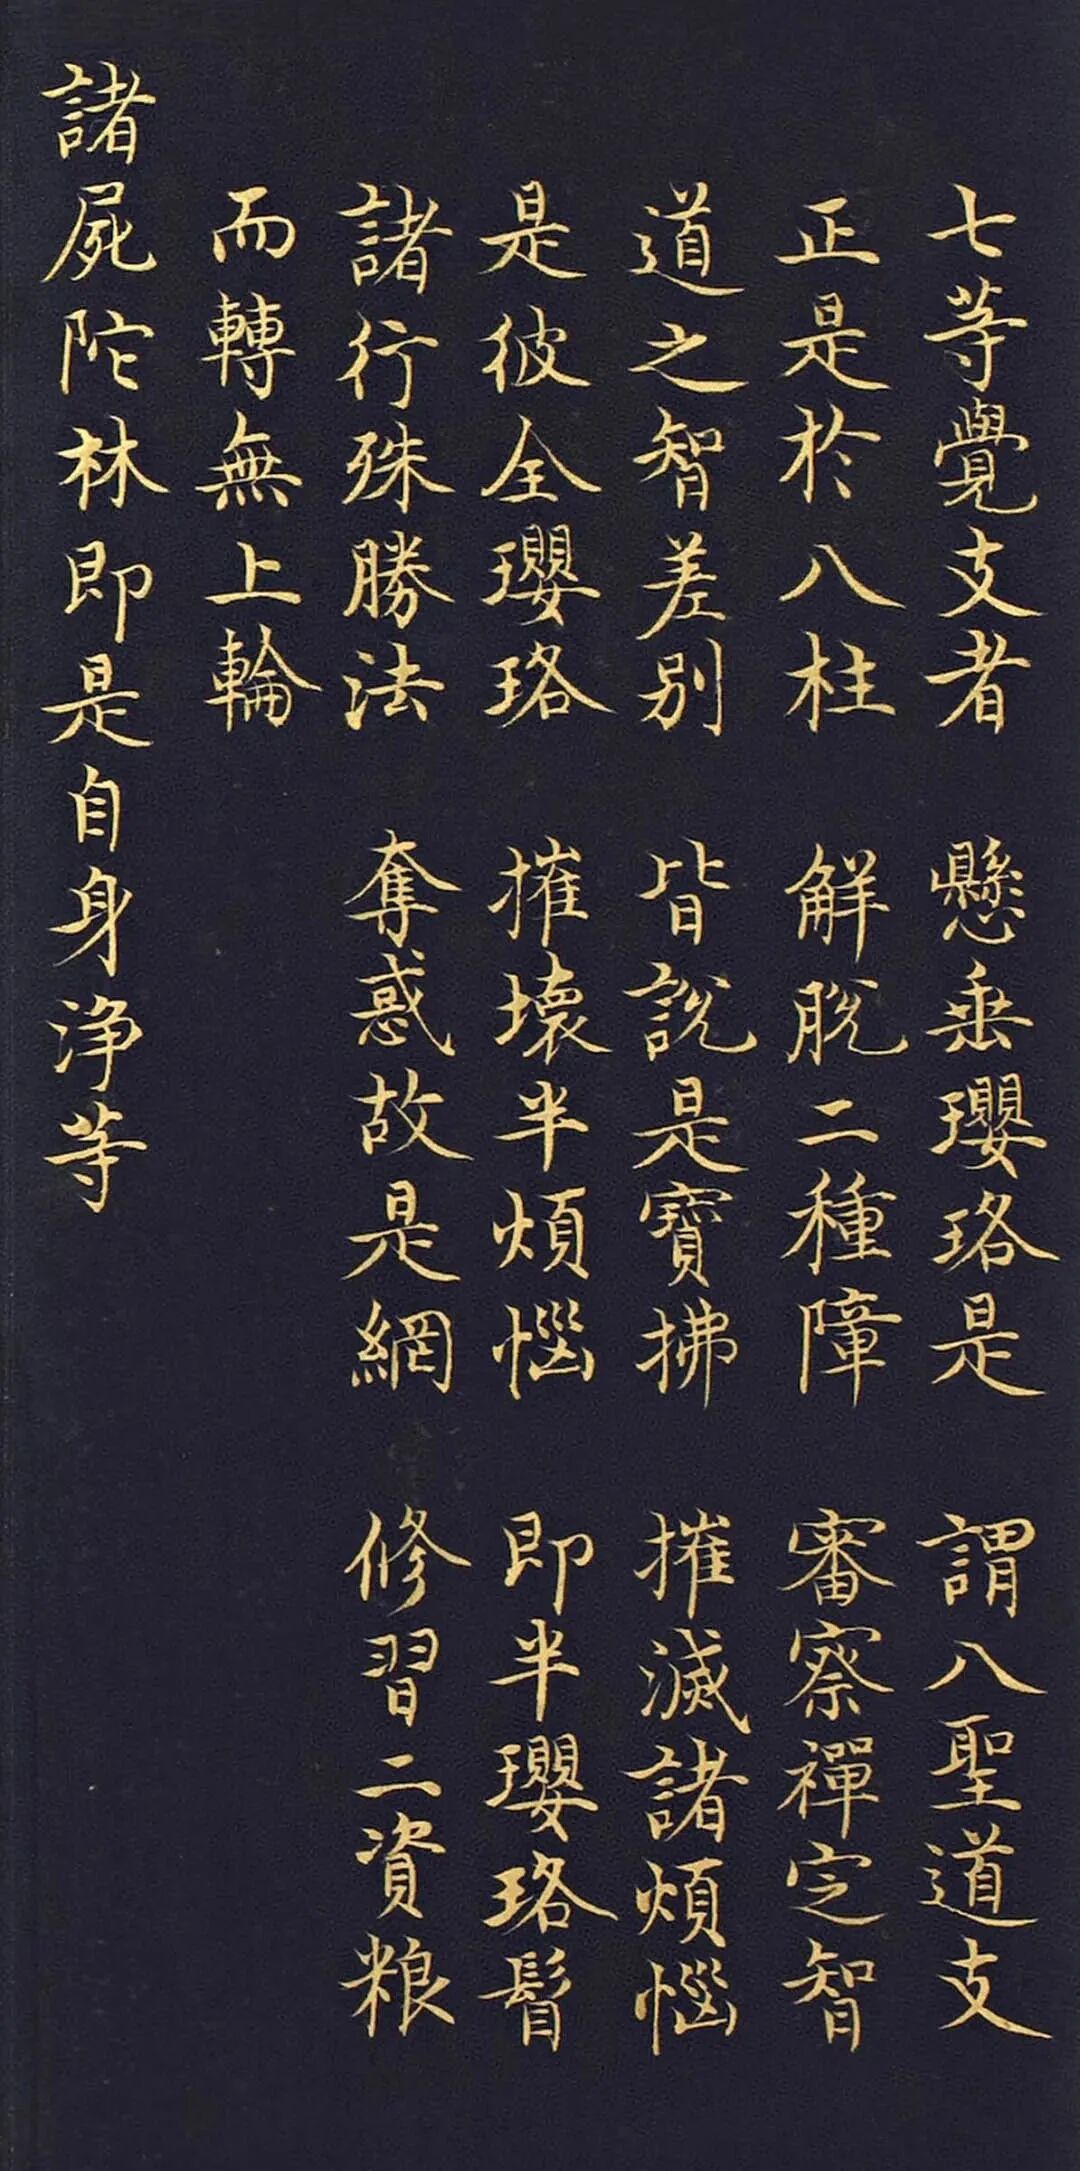 七等覺支者　懸垂瓔珞是　謂八聖道支
正是於八柱　解脫二種障　審察禪定智
道之智差別　皆說是寶拂　摧滅諸煩惱
是彼全瓔珞　摧壞半煩惱　即半瓔珞鬘
諸行殊勝法　奪惑故是網　修習二資粮
而轉無上輪
諸屍陀林即是自身浄等